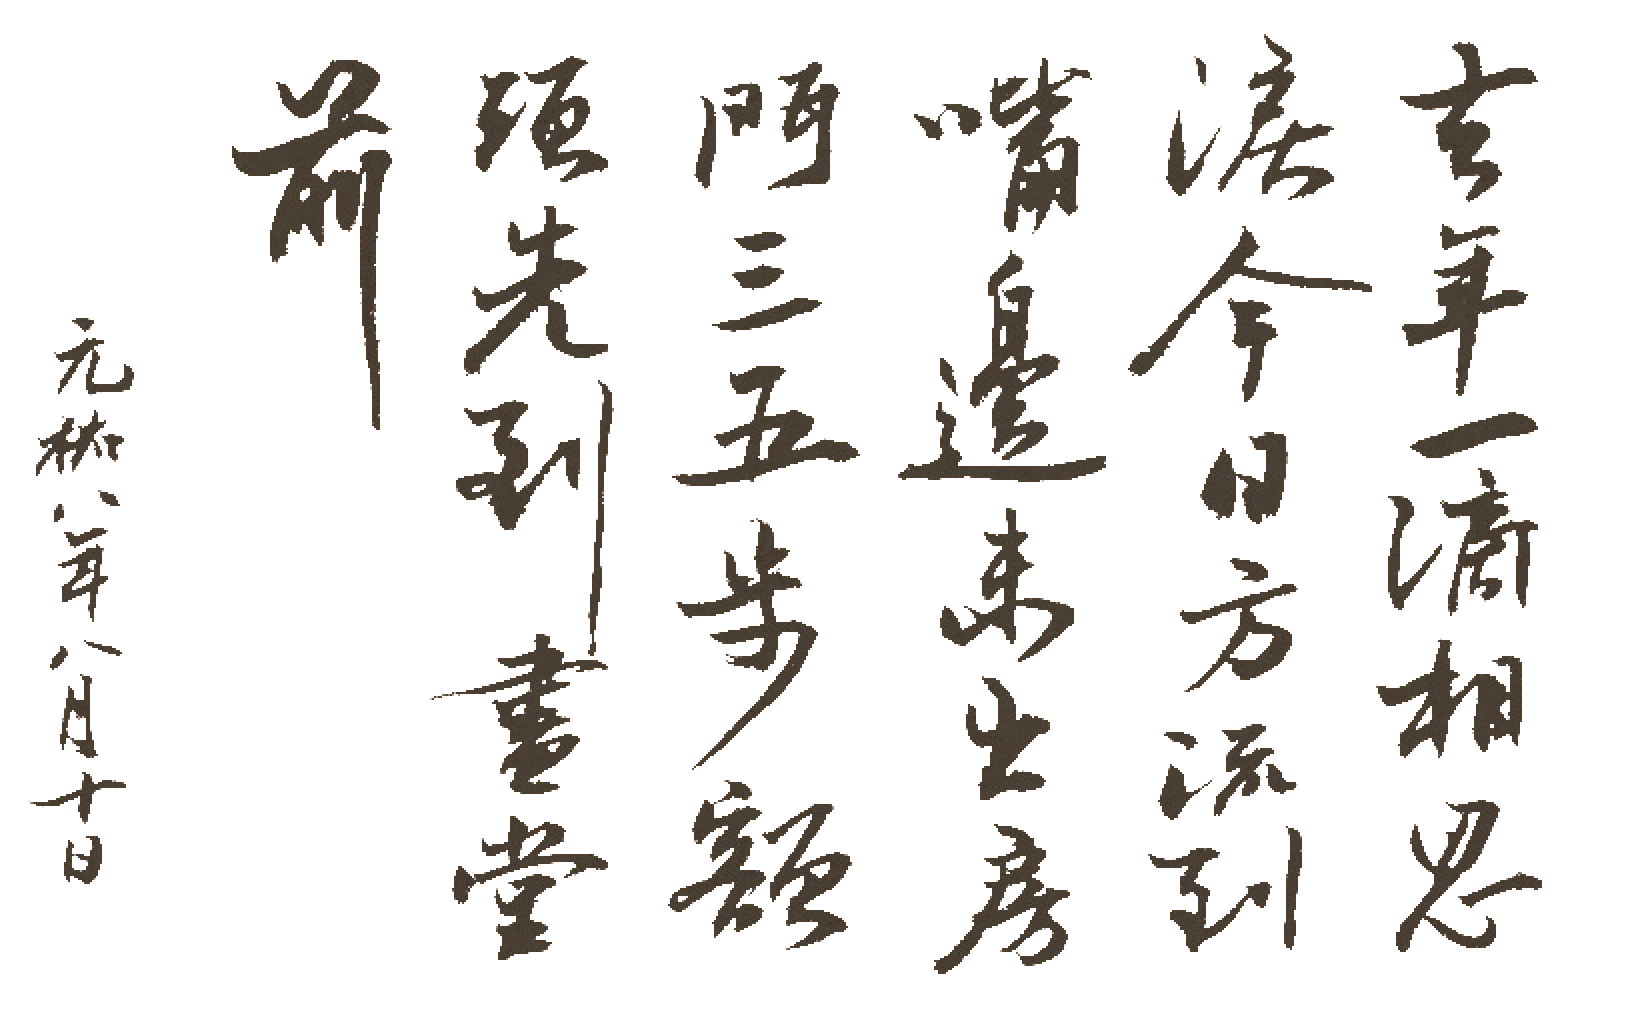 去年一滴相思
淚今日方流到
嘴邊未出房
門三五步額
頭先到畫堂
前
元祐八年八月十日